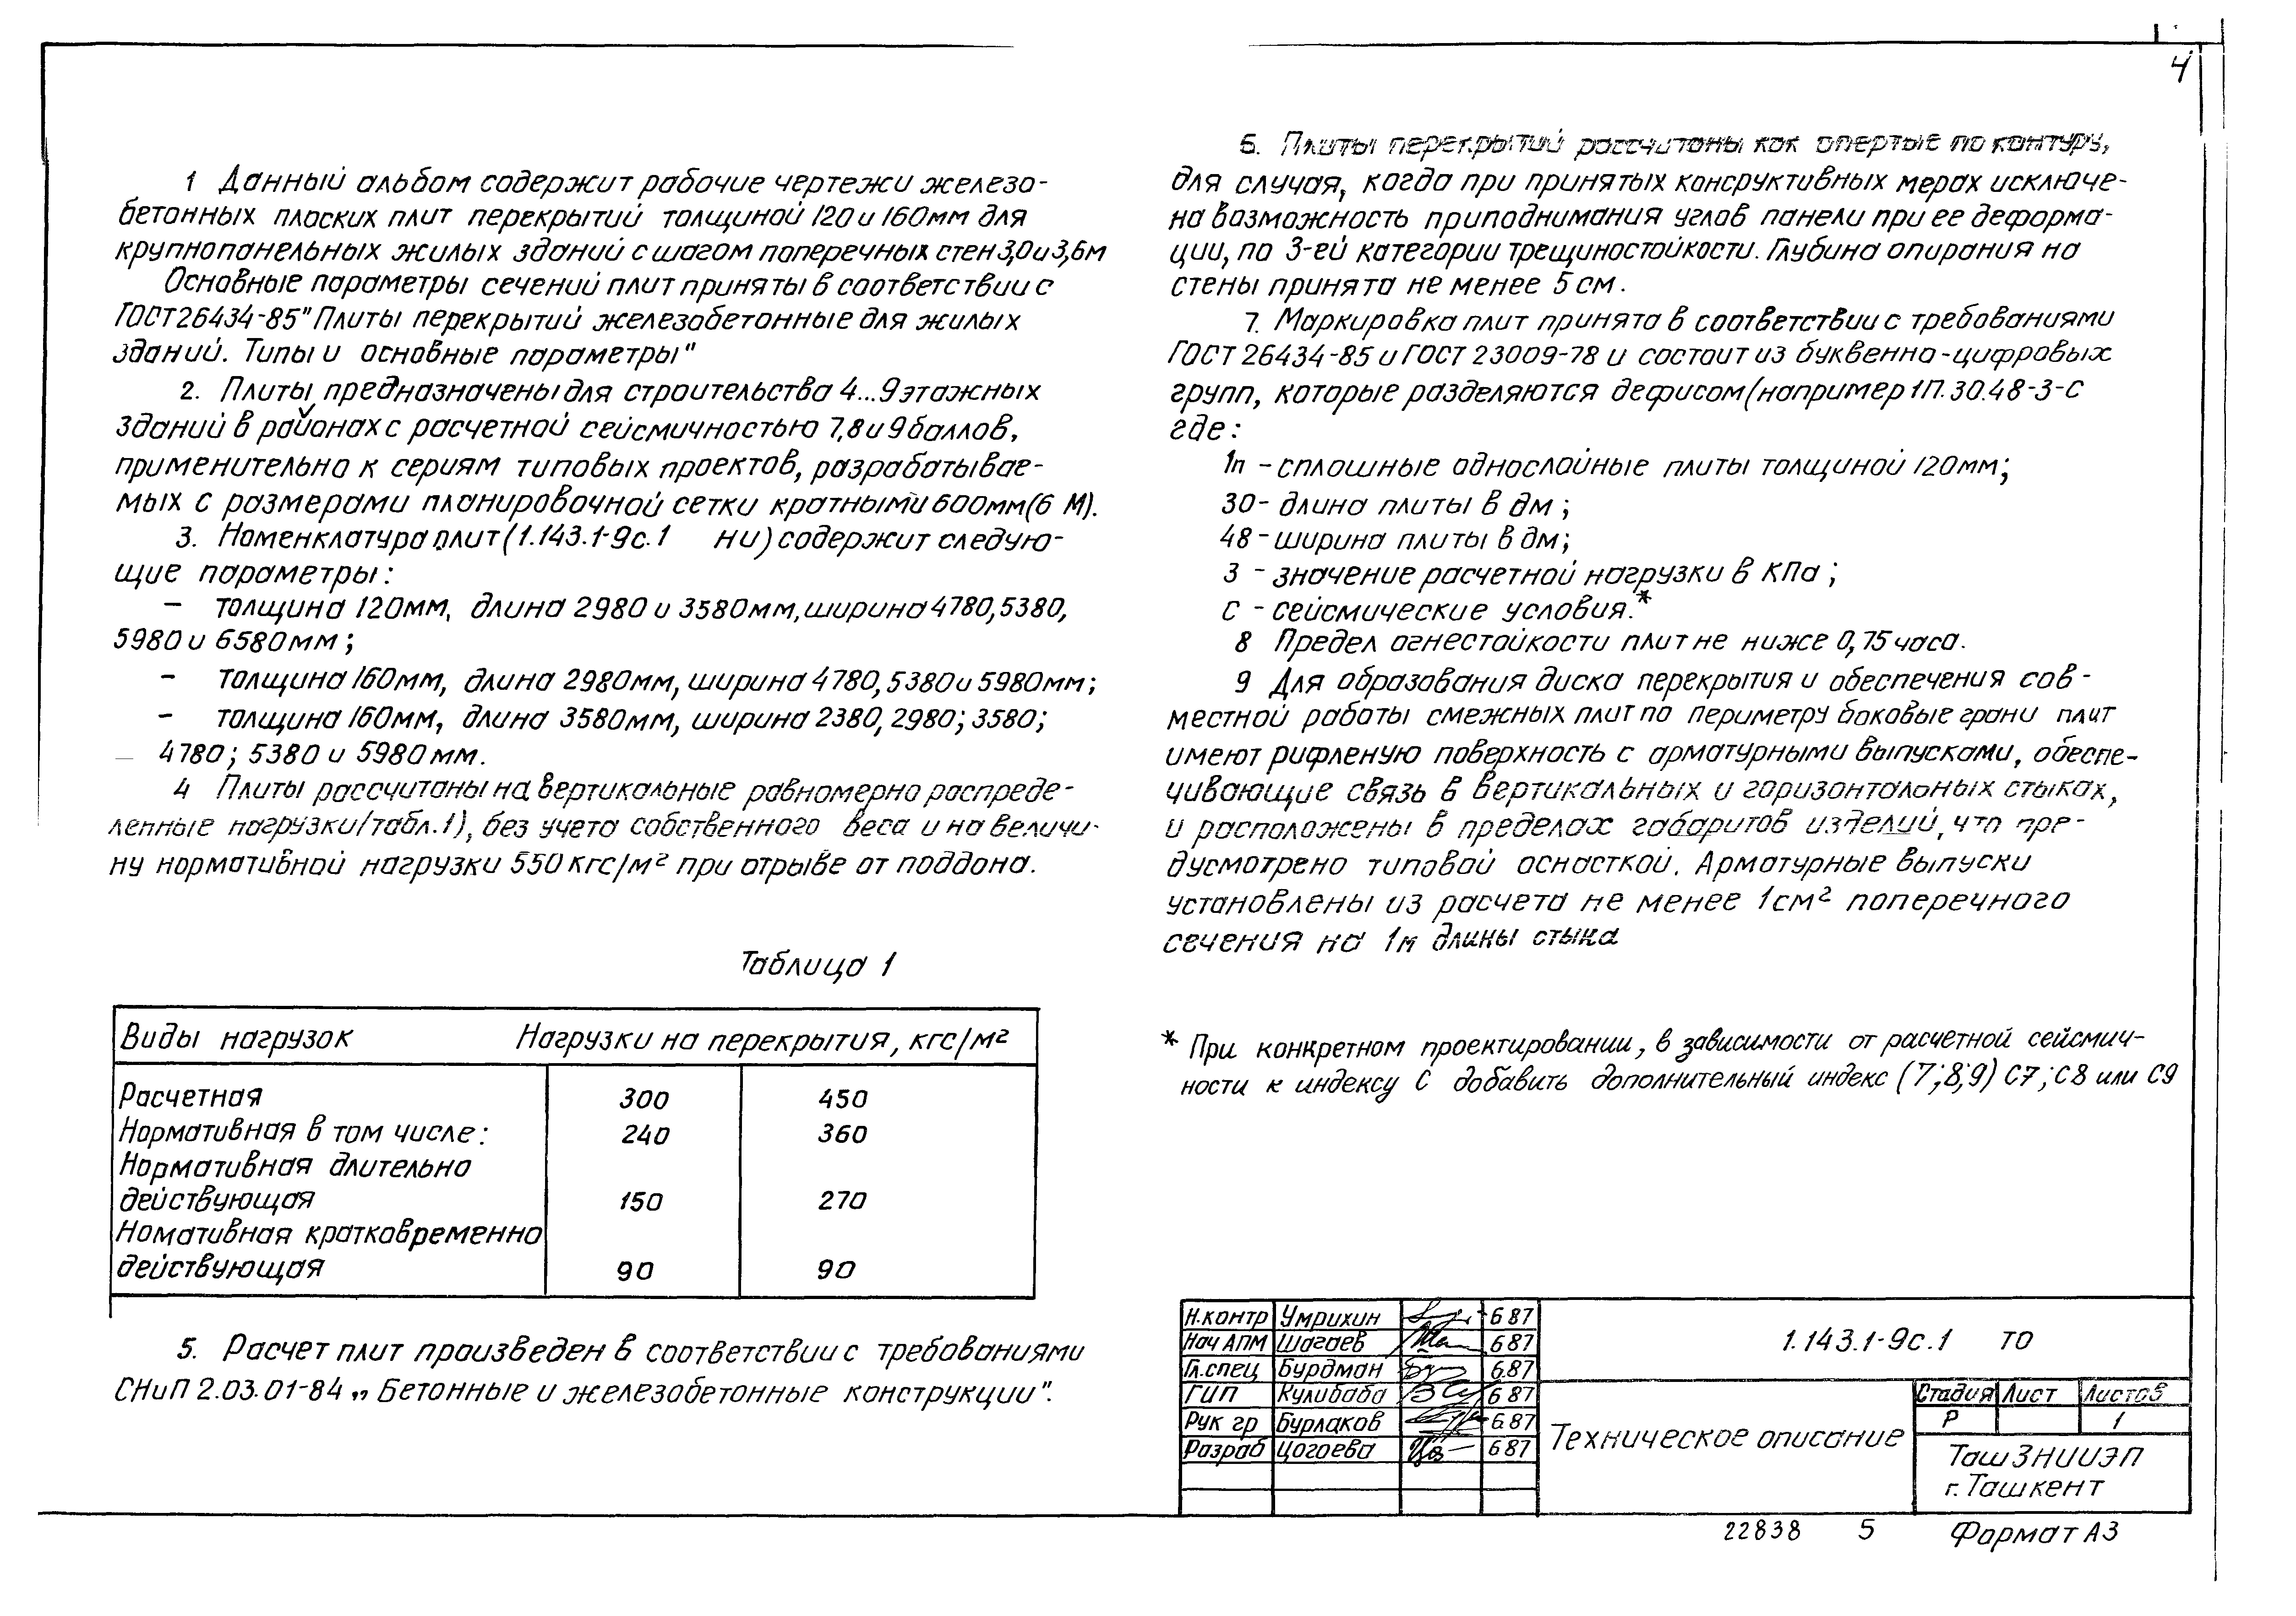 4
1 Данный альбом содержит рабочие чертежи железо-
бетонных плоских плит перекрытий толщиной 120 и 160мм для
крупнопанельных жилых зданий с шагом поперечных стен 3,0 и 3,6м
Основные параметры сечений плит приняты в соответствии с
ГОСТ 26434-85" Плиты перекрытий железобетонные для жилых
зданий. Типы и основные параметры"
2. Плиты предназначены для строительства 4...9 этажных
зданий в районах с расчетной сейсмичностью 7,8 и 9 баллов,
применительно к сериям типовых проектов, разрабатывае-
мых с размерами планировочной сетки кратными 600мм(6 М).
3. Номенклатура плит (1.143.1-9с.1 НИ) содержит следую-
щие параметры:
- толщина 120мм, длина 2980 и 3580мм, ширина 4780,5380,
5980 и 6580мм;
- толщина 160мм, длина 2980мм, ширина 4780,5380 и 5980мм;
- толщина 160мм, длина 3580мм, ширина 2380, 2980; 3580;
4780; 5380 и 5980мм.
4 Плиты рассчитаны на вертикальные равномерно распреде-
ленные нагрузки/табл.1), без учета собственного веса и на величи-
ну нормативной нагрузки 550кгс/м² при отрыве от поддона.
Таблица 1
Виды нагрузок Нагрузки на перекрытия, кгс/м²
Расчетная 300 450
Нормативная в том числе: 240 360
Нормативная длительно
действующая 150 270
Номативная кратковременно
действующая 90 90
5. Расчет плит произведен в соответствии с требованиями
СНиП 2.03.01-84 „ Бетонные и железобетонные конструкции".
6. Плиты перекрытий рассчитаны как опертые по контуру,
для случая, когда при принятых консруктивных мерах исключе-
на возможность приподнимания углов панели при ее деформа-
ции, по 3-ей категории трещиностойкости. Глубина опирания на
стены принята не менее 5 см.
7. Маркировка плит принята в соответствии с требованиями
ГОСТ 26434-85 и ГОСТ 23009-78 и состоит из буквенно-цифровых
групп, которые разделяются дефисом (например 1П.30.48-3-С
где:
1п - сплошные однослойные плиты толщиной 120мм;
30- длина плиты в дм;
48-ширина плиты в дм;
3 - значение расчетной нагрузки в КПа;
с - сейсмические условия.*
8 Предел огнестойкости плит не ниже 0,75 часа.
9 Для образования диска перекрытия и обеспечения сов-
местной работы смежных плит по периметру боковые грани плит
имеют рифленую поверхность с арматурными выпусками, обеспе-
чивающие связь в вертикальных и горизонтальных стыках,
и расположены в пределах габаритов изделий, что пре-
дусмотрено типовой оснасткой. Арматурные выпуски
установлены из расчета не менее 1см² поперечного
сечения на 1м длины стыка
* При конкретном проектировании, в зависимости от расчетной сейсмич-
ности к индексу С добавить дополнительный индекс (7;8;9) С7; С8 или С9
Н.контр Умрихин 6 87
Нач АПМ Шагаев 6 87
Гл.спец Бурдман 6.87
ГИП Кулибаба 6 87
Рук гр Бурлаков 6.87
Разраб Цогоева 6 87
1.143.1-9с.1 ТО
Техническое описание
Стадия Лист Листов
Р 1
ТашЗНИИЭП
г. Ташкент
22838 5 Формат А3